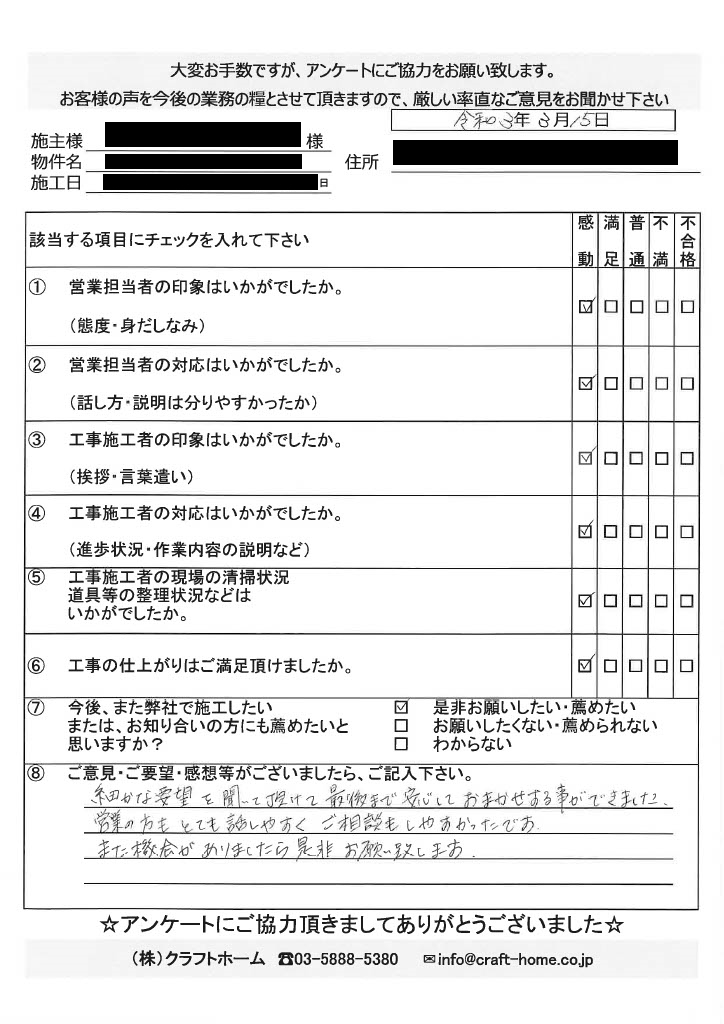 大変お手数ですが、アンケートにご協力をお願い致します。
お客様の声を今後の業務の糧とさせて頂きますので、厳しい率直なご意見をお聞かせ下さい
令和3年3月15日
施主様 様
物件名 住所
施工日 日
該当する項目にチェックを入れて下さい 感動 満足 普通 不満 不合格
① 営業担当者の印象はいかがでしたか。
(態度・身だしなみ) ☑ □ □ □ □
② 営業担当者の対応はいかがでしたか。
(話し方・説明は分りやすかったか) ☑ □ □ □ □
③ 工事施工者の印象はいかがでしたか。
(挨拶・言葉遣い) ☑ □ □ □ □
④ 工事施工者の対応はいかがでしたか。
(進歩状況・作業内容の説明など) ☑ □ □ □ □
⑤ 工事施工者の現場の清掃状況
道具等の整理状況などは
いかがでしたか。 ☑ □ □ □ □
⑥ 工事の仕上がりはご満足頂けましたか。 ☑ □ □ □ □
⑦ 今後、また弊社で施工したい ☑ 是非お願いしたい・薦めたい
または、お知り合いの方にも薦めたいと □ お願いしたくない・薦められない
思いますか？ □ わからない
⑧ ご意見・ご要望・感想等がございましたら、ご記入下さい。
細かな要望を聞いて頂けて最後まで安心しておまかせする事ができました。
営業の方もとても話しやすくご相談もしやすかったです。
また機会がありましたら是非お願い致します。
☆アンケートにご協力頂きましてありがとうございました☆
(株)クラフトホーム ☎03-5888-5380 ✉info@craft-home.co.jp